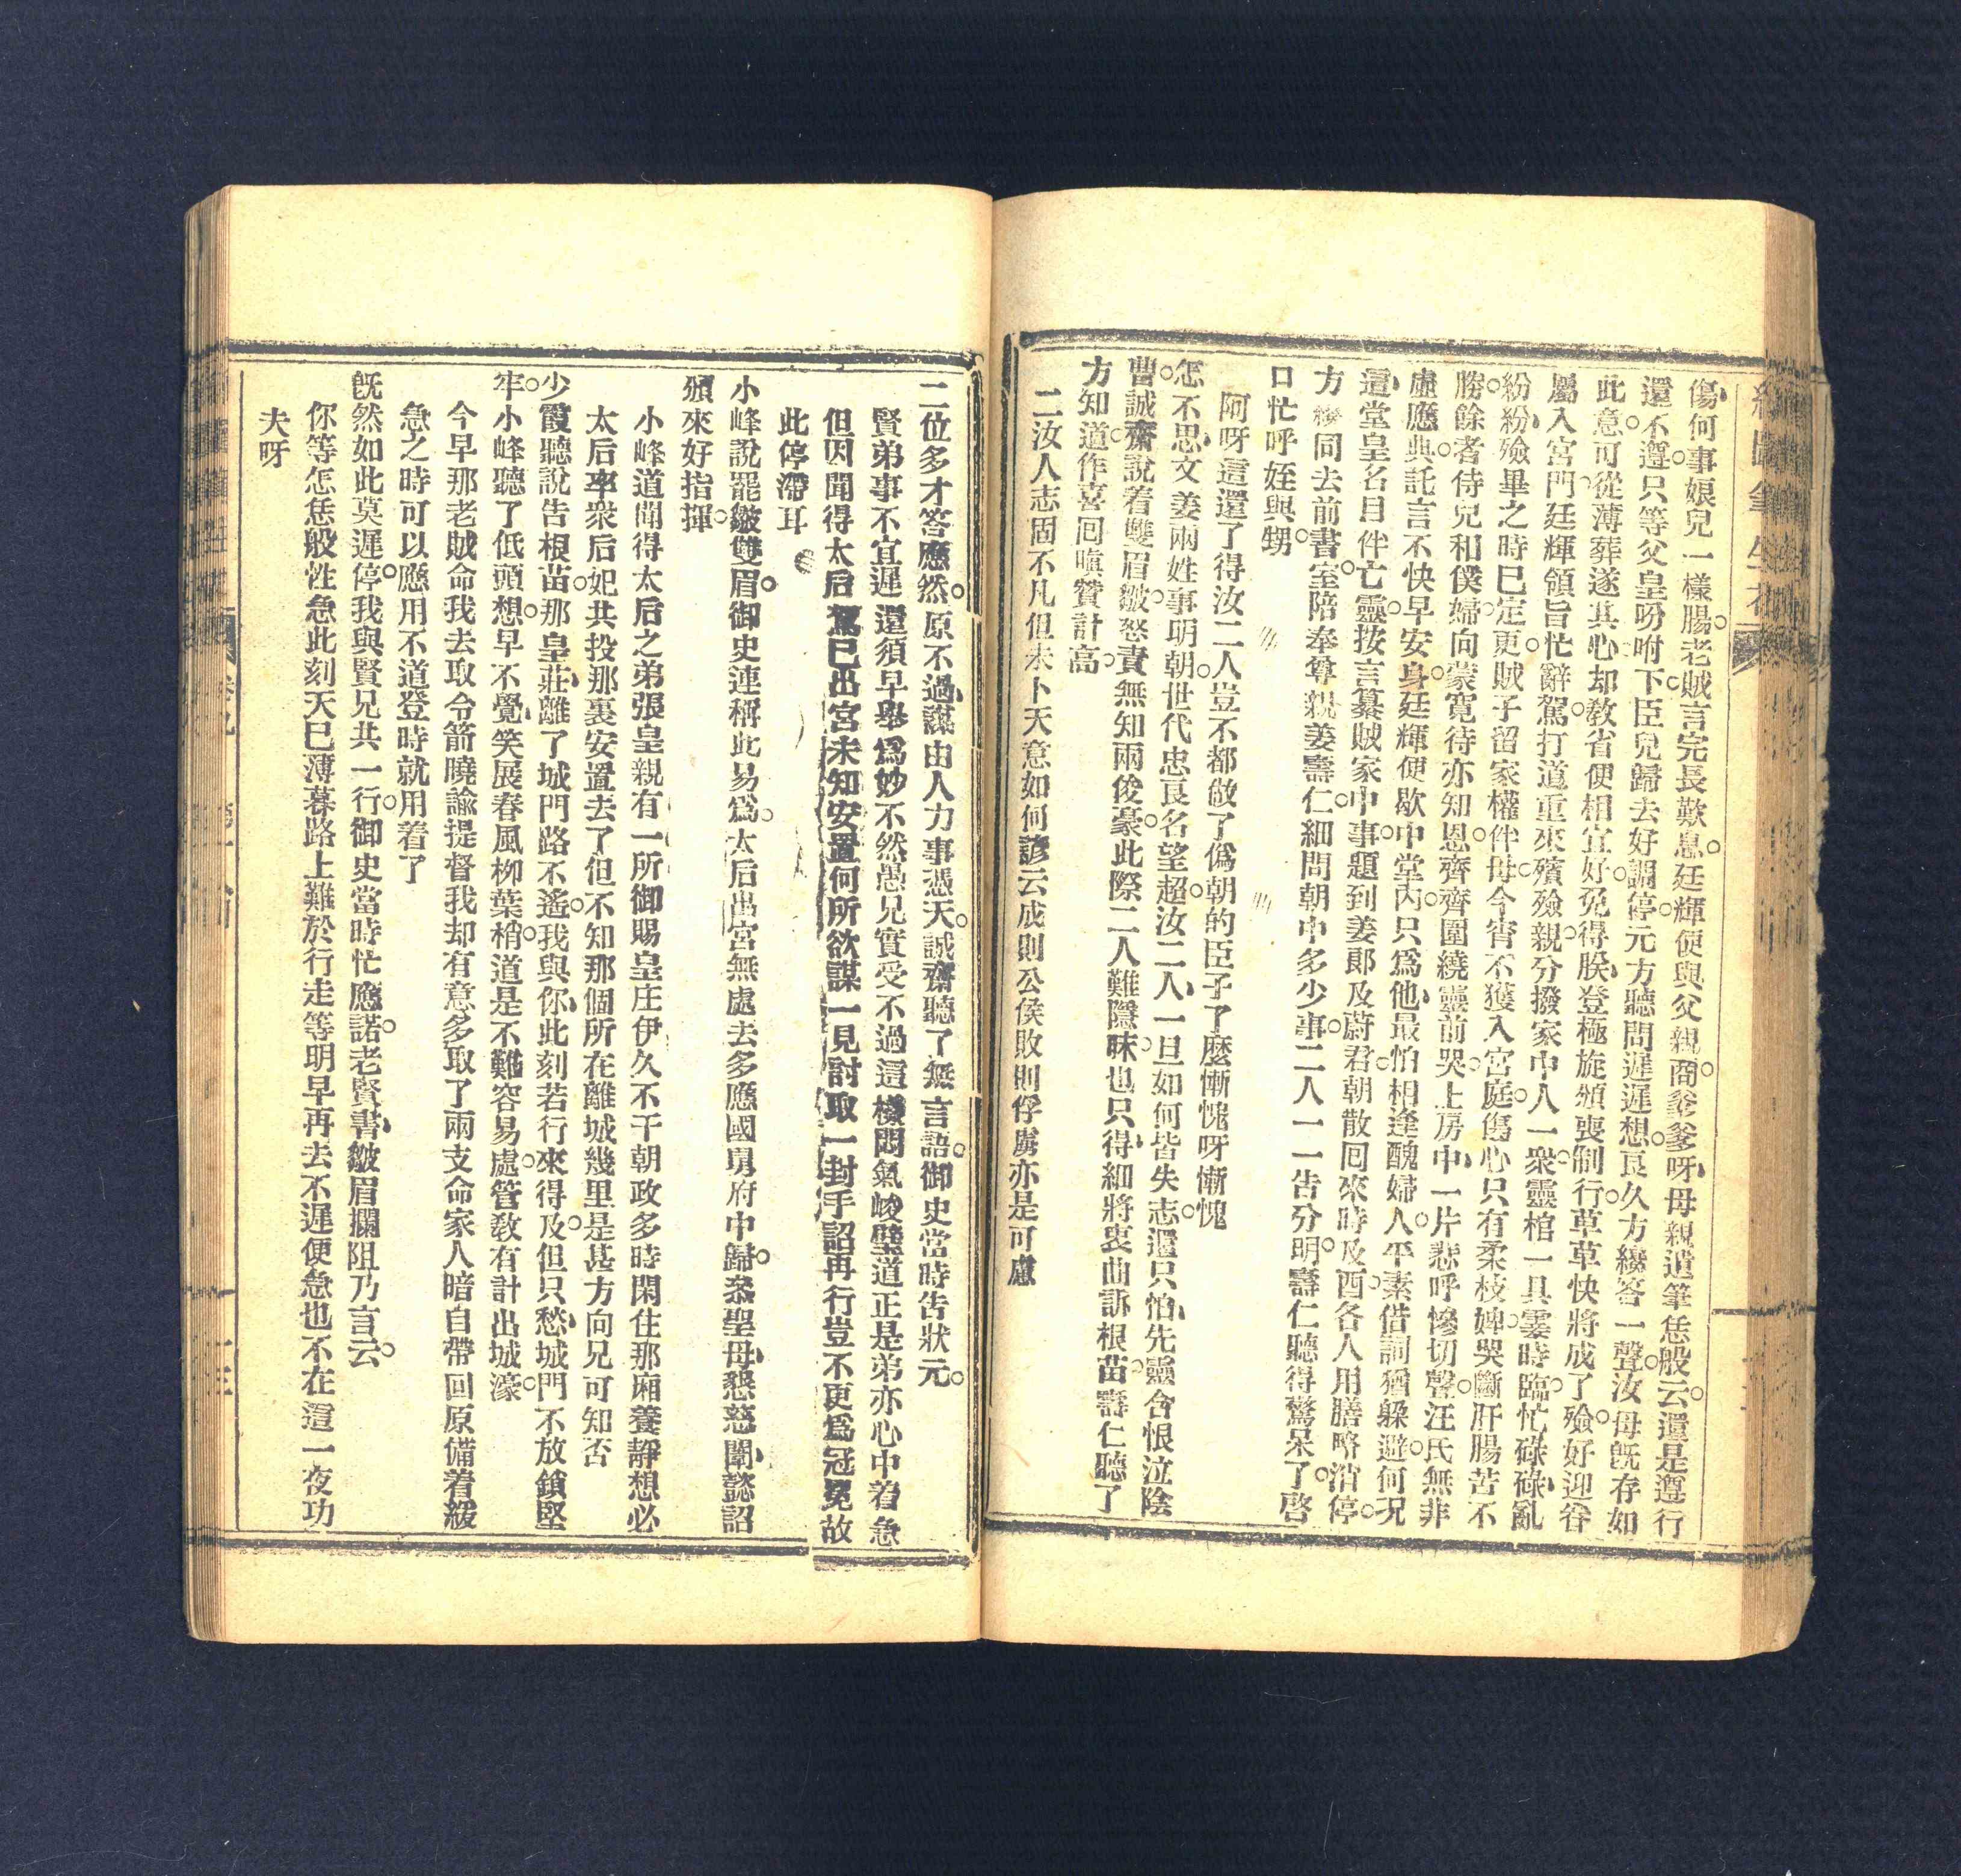 傷何事娘兒一樣腸老賊言完長歎息廷輝便與父親商爹爹呀母親遺筆恁般云還是遵行
還不遵只等父皇吩咐下臣兒歸去好調停元方聽問遲遲想良久方纔答一聲汝母既存如
此意可從薄葬遂其心却教省便相宜好免得朕登極旋頒喪制行草草快將成了殮好迎眷
屬入宮門廷輝領旨忙辭駕打道重來殯殮親分撥家中人一衆靈棺一具霎時臨忙碌碌亂
紛紛殮畢之時已定更賊子留家權伴母今宵不獲入宮庭傷心只有柔枝婢哭斷肝腸苦不
勝餘者侍兒和僕婦向蒙寬待亦知恩齊齊圍繞靈前哭上房中一片悲呼慘切聲汪氏無非
虛應典託言不快早安身廷輝便歇中堂內只爲他最怕相逢醜婦人平素借詞猶躲避何况
這堂皇名目伴亡靈按言纂賊家中事題到姜郎及蔚君朝散回來時及酉各人用膳略消停
方纔同去前書室陪奉尊親姜壽仁細問朝中多少事二人一一告分明壽仁聽得驚呆了啓
口忙呼姪與甥
阿呀這還了得汝二人豈不都做了僞朝的臣子了麼慚愧呀慚愧
怎不思文姜兩姓事明朝世代忠良名望超汝二人一旦如何皆失志還只怕先靈含恨泣陰
曹誠齋說着雙眉皺怒責無知兩俊豪此際二人難隱昧也只得細將衷曲訴根苗壽仁聽了
方知道作喜回嗔贊計高
二汝人志固不凡但未卜天意如何諺云成則公侯敗則俘虜亦是可慮
二位多才答應然原不過謀由人力事憑天誠齋聽了無言語御史當時告狀元
賢弟事不宜遲還須早舉爲妙不然愚兄實受不過這樣悶氣峻璧道正是弟亦心中着急
但因聞得太后駕已出宮未知安置何所欲謀一見討取一封手詔再行豈不更爲冠冕故
此停滯耳
小峰說罷皺雙眉御史連稱此易爲太后出宮無處去多應國舅府中歸叅聖母懇慈闈懿詔
頒來好指揮
小峰道聞得太后之弟張皇親有一所御賜皇庄伊久不干朝政多時閑住那廂養靜想必
太后率衆后妃共投那裏安置去了但不知那個所在離城幾里是甚方向兄可知否
少霞聽說告根苗那皇莊離了城門路不遙我與你此刻若行來得及但只愁城門不放鎖堅
牢小峰聽了低頭想早不覺笑展春風柳葉梢道是不難容易處管教有計出城濠
今早那老賊命我去取令箭曉諭提督我却有意多取了兩支命家人暗自帶回原備着緩
急之時可以應用不道登時就用着了
既然如此莫遲停我與賢兄共一行御史當時忙應諾老賢書皺眉攔阻乃言云
你等怎恁般性急此刻天已薄暮路上難於行走等明早再去不遲便急也不在這一夜功
夫呀